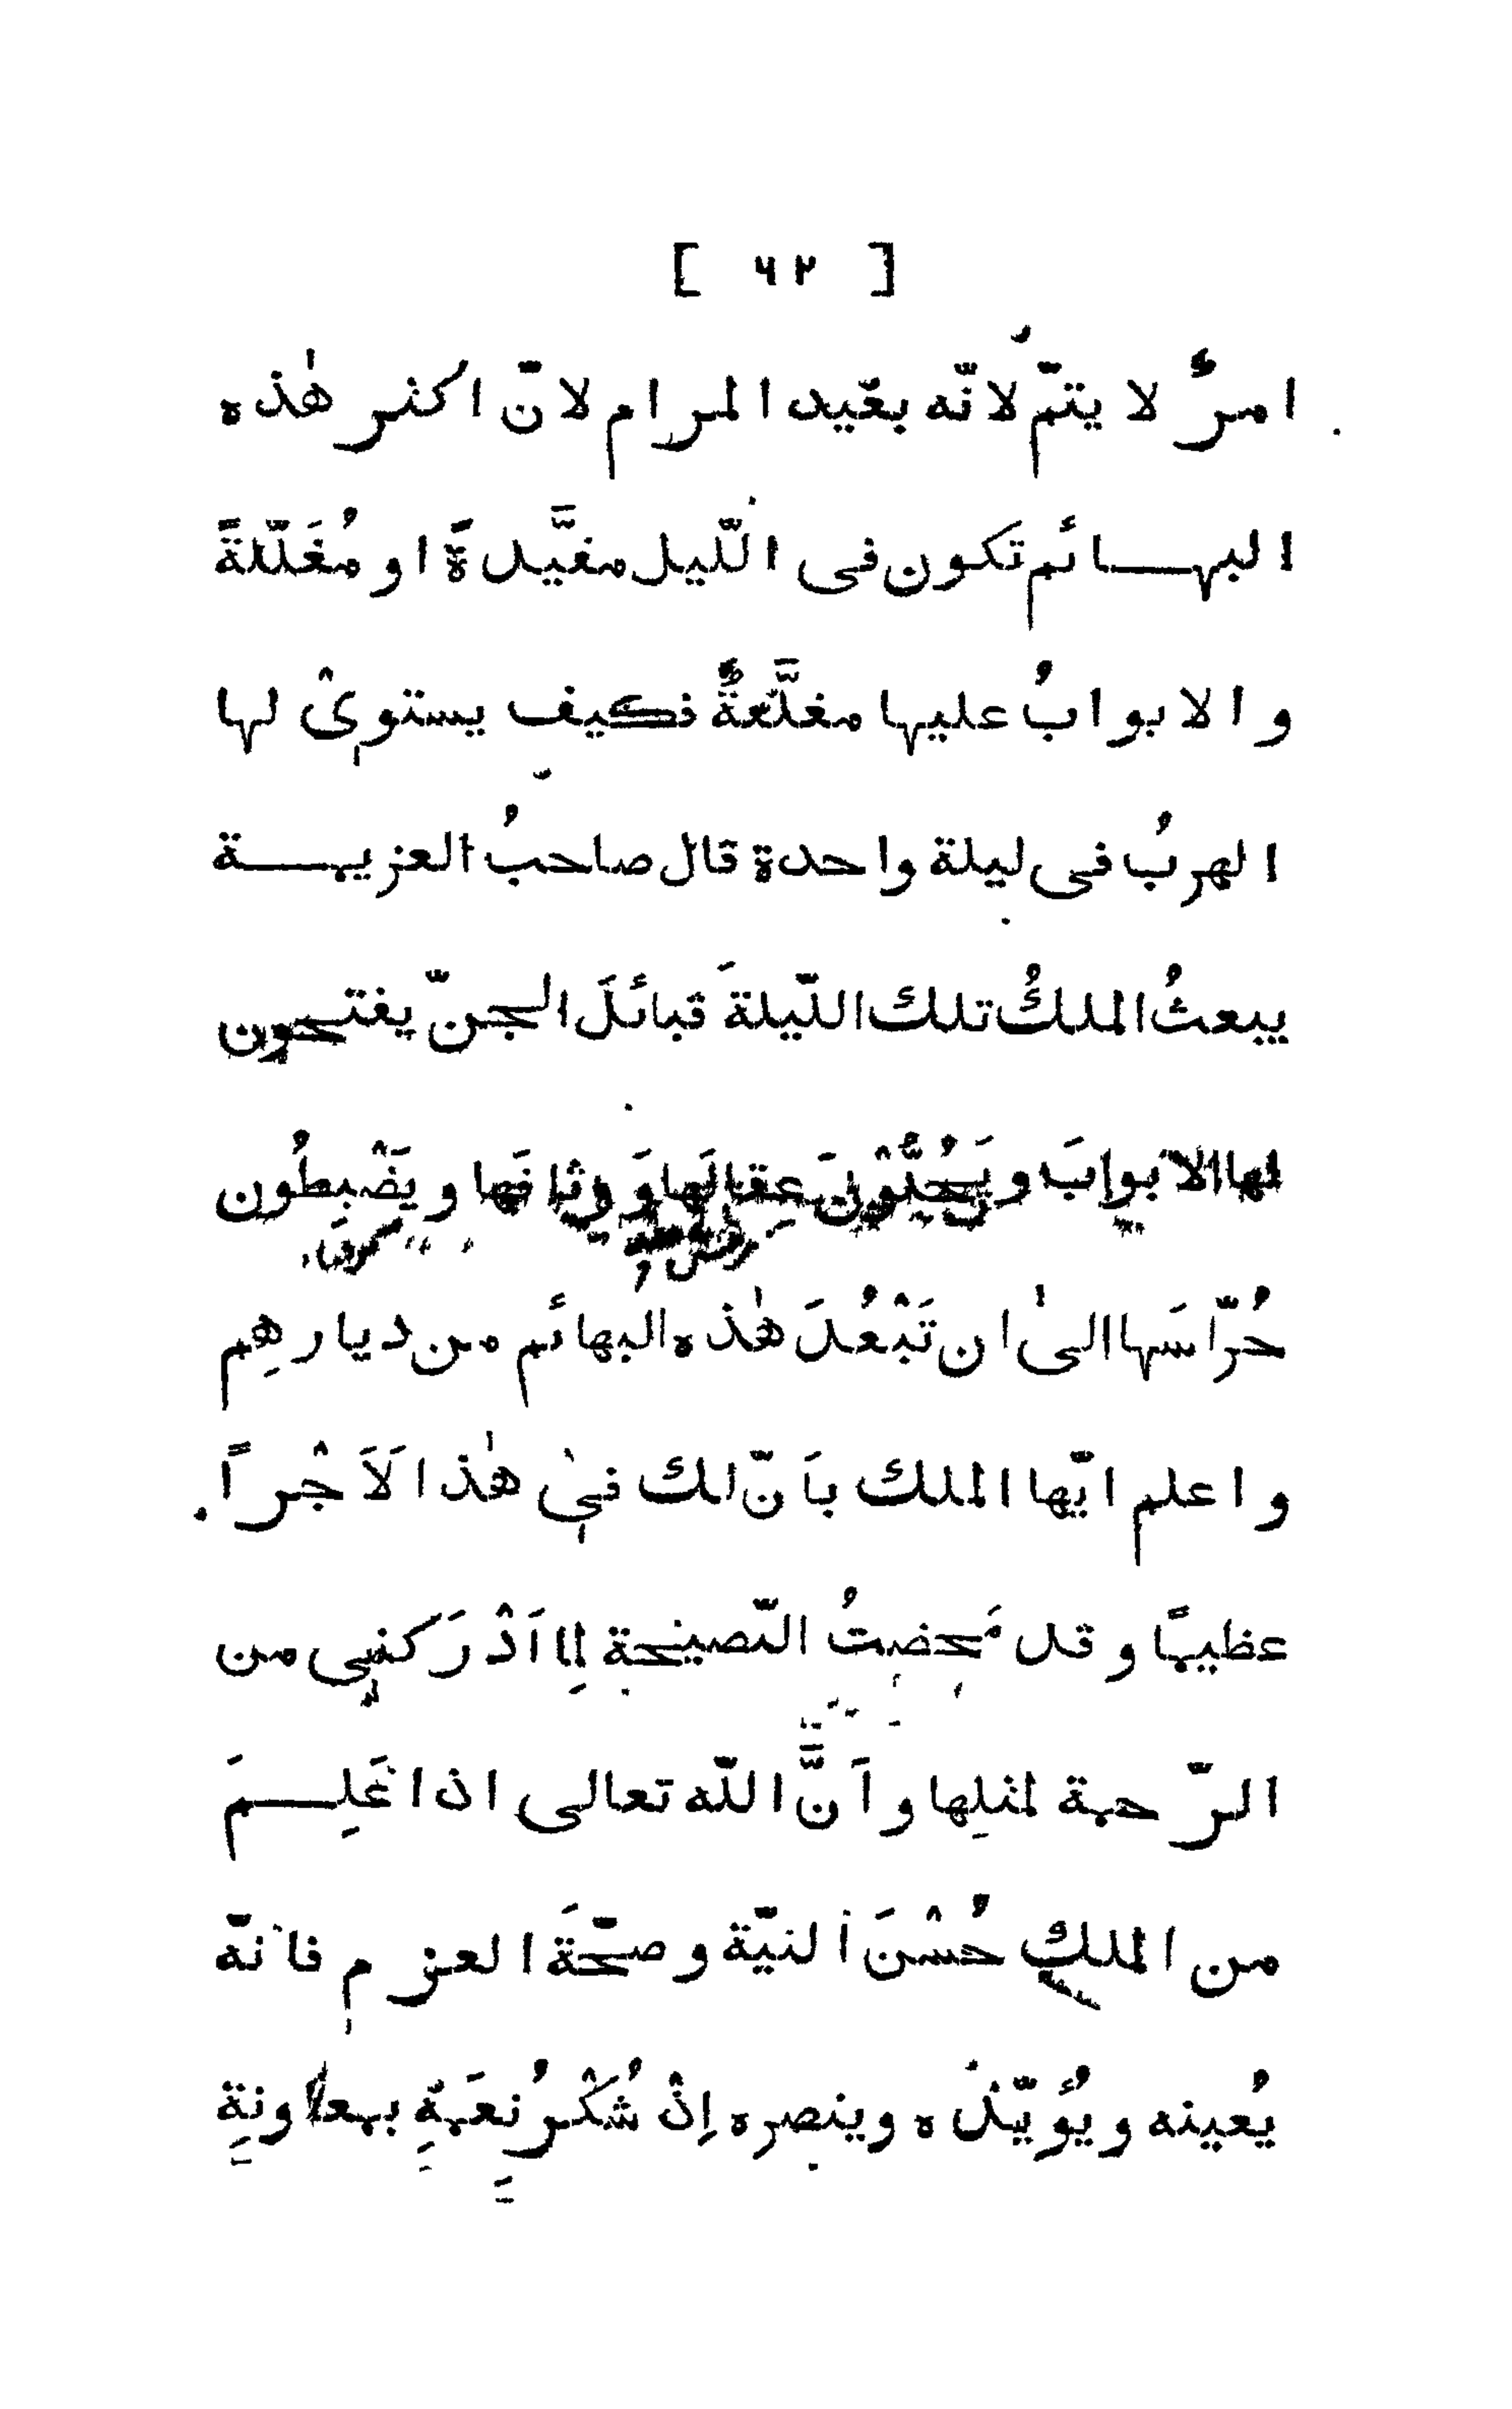 [ ٦٢ ]
امرٌ لا يتمّ لانّه بعيد المرام لانّ اكثر هٰذه
البهائم تكون فى اللّيل مقيَّدةً او مُغَلّلةً
و الابوابُ عليها مغلَّقةٌ فكيف يستوىْ لها
الهربُ فى ليلة واحدة قال صاحبُ العزيمة
يبعثُ الملكُ تلك اللّيلةَ قبائلَ الجنّ يفتحون
لها الابوابَ و يَحُلُّوْنَ عِقالَها وَ وِثاقَها و يَضْبِطُون
حُرّاسَها الىٰ ان تَبْعُدَ هٰذه البهائم من ديارهِم
و اعلم ايّها الملك بأَنّ لك فىْ هٰذا لَاَجْراً
عظيمًا و قد مَحضتُ النّصيحة لِما اَدْرَكنى من
الرّحمة لمثلِها و اَنَّ اللّه تعالى اذا عَلِمَ
من الملكِ حُسْنَ النيّة و صحّةَ العزم فانّه
يُعينه و يُؤيّدُه وينصره اِنْ شُكْرُ نعَمِهِ بمعاونةِ